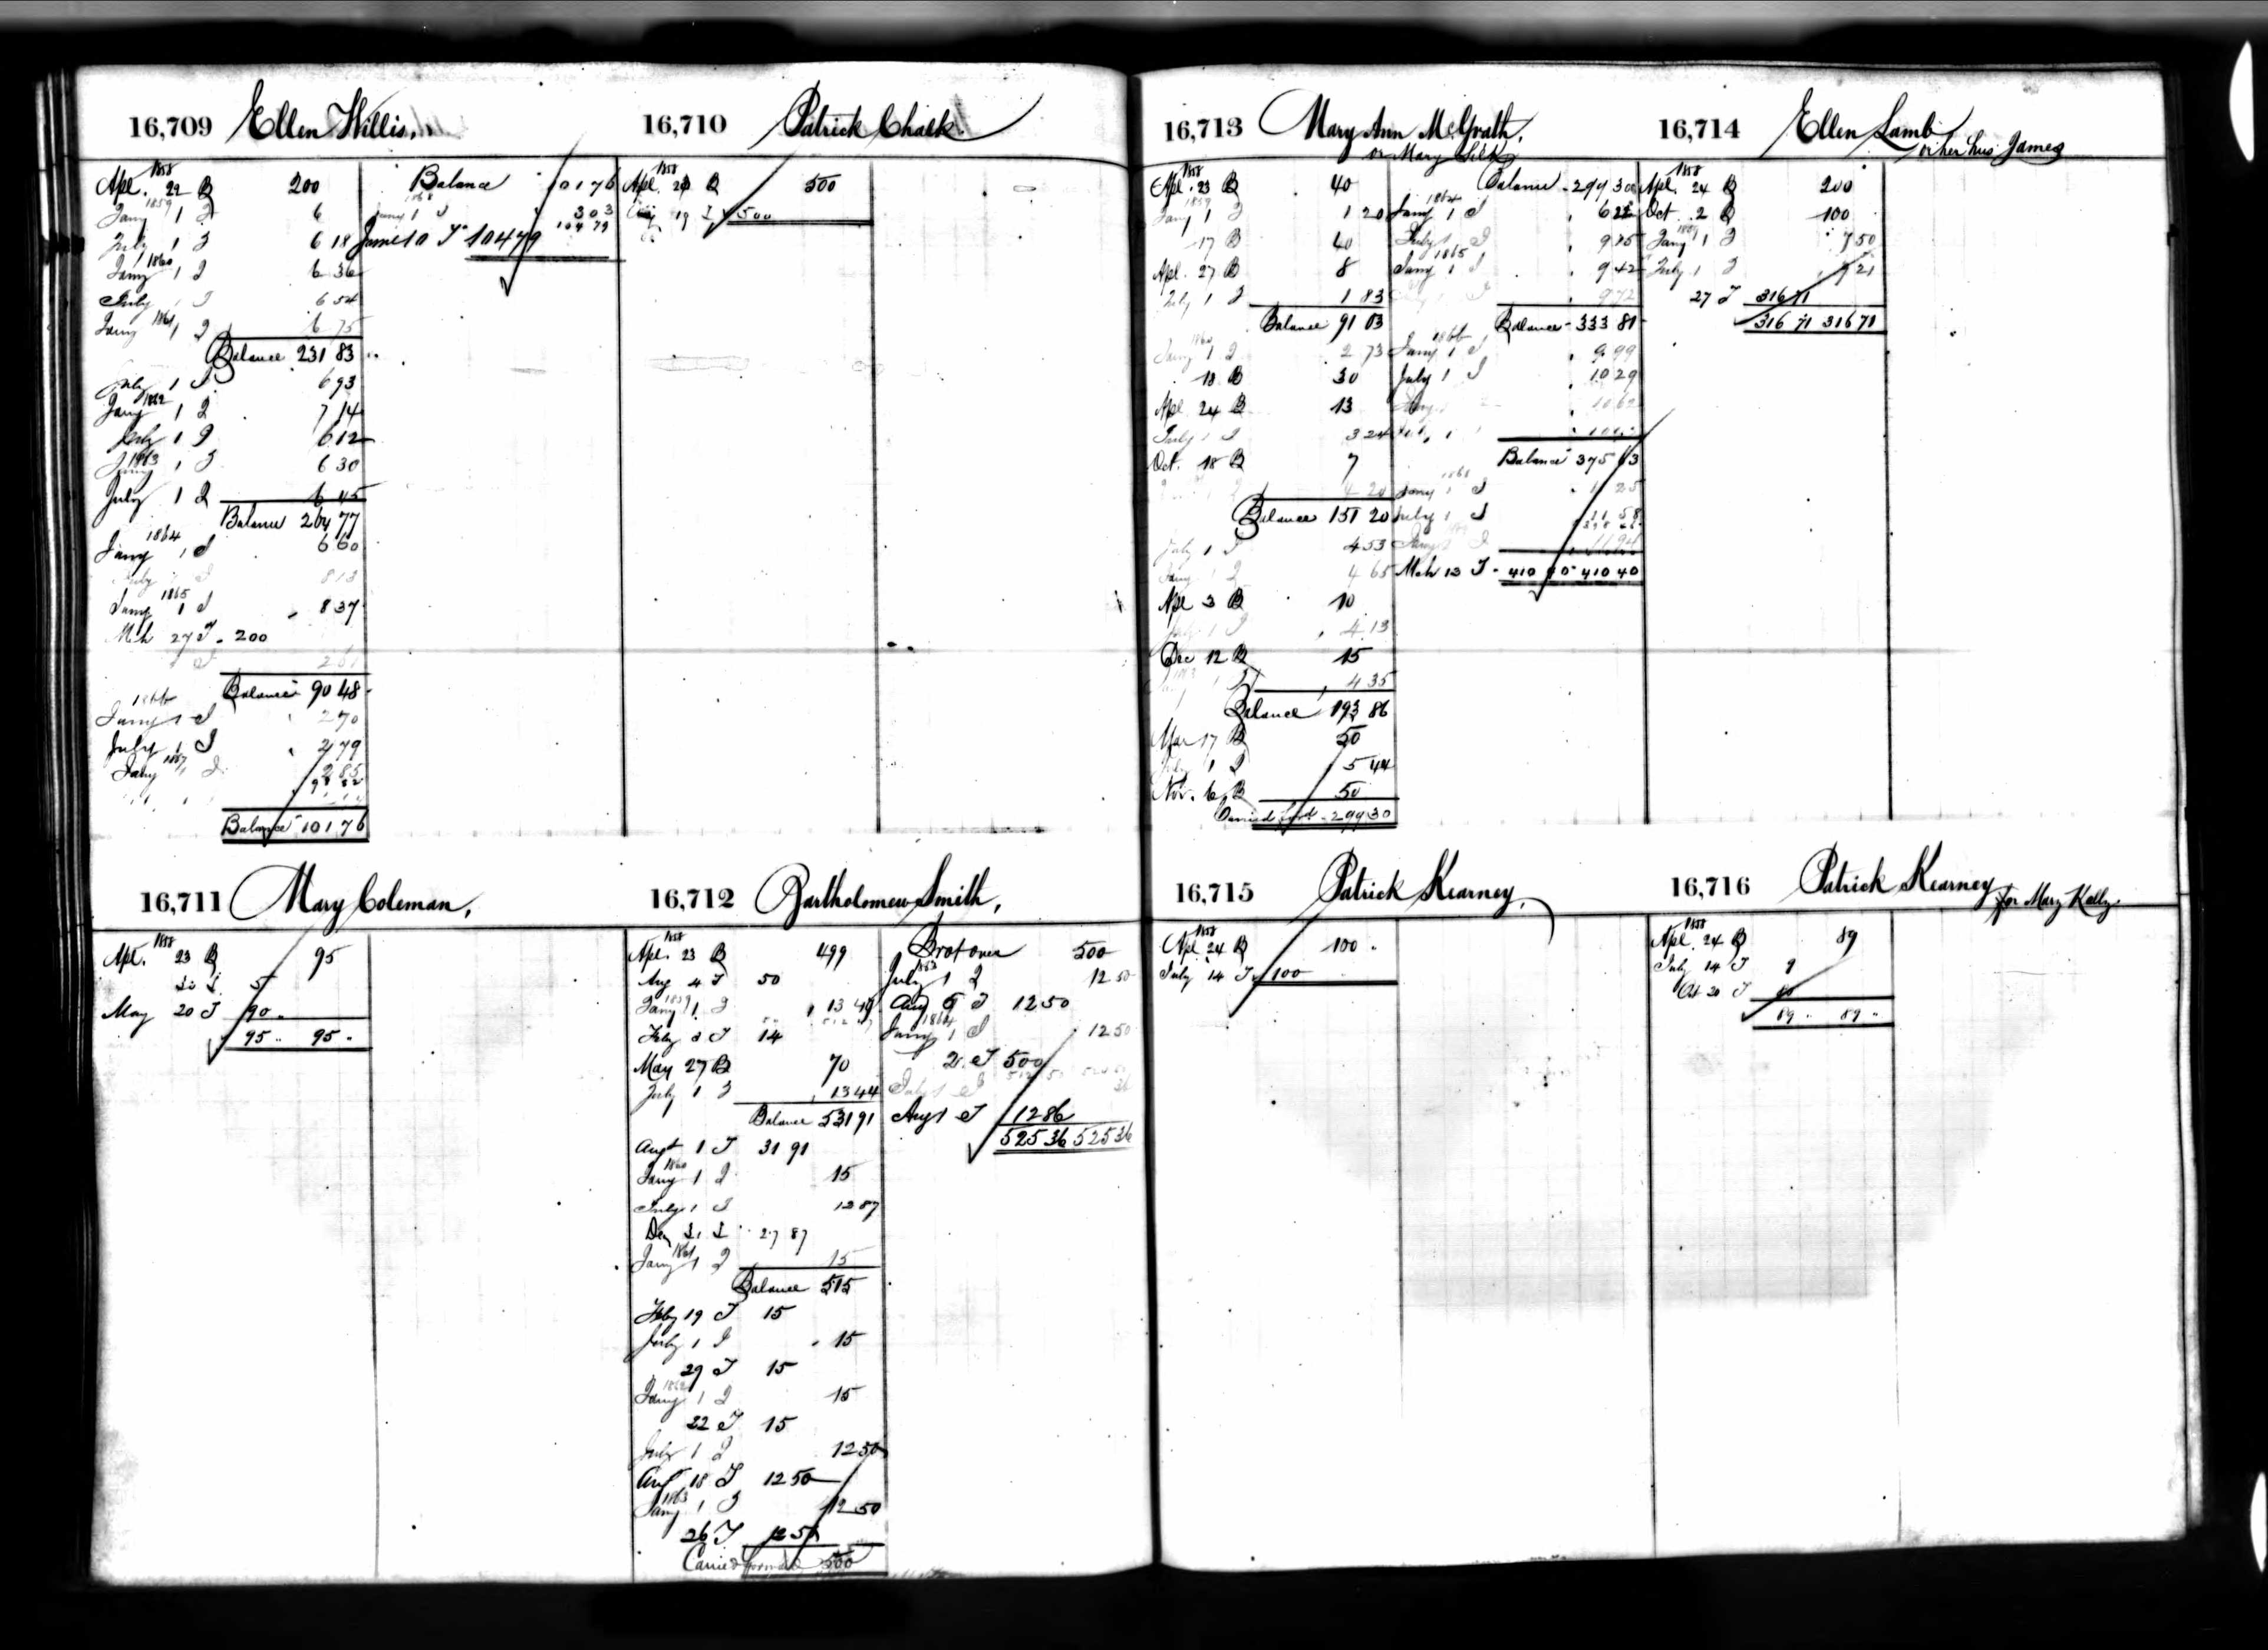 16,709 Ellen Willis.
1858
Apl. 22 B 200
1859
Jany 1 I 6
July 1 I 6 18
1860
Jany 1 I 6 36
July 1 I 6 54
1861
Jany 1 I 6 75
Balance 231 83
July 1 I 6 93
1862
Jany 1 I 7 14
July 1 I 6 12
1863
Jany 1 I 6 30
July 1 I 6 45
Balance 264 77
1864
Jany 1 I 6 60
July 1 I 8 13
1865
Jany 1 I 8 37
Mch 27 T 200
I 2 61
Balance 90 48
1866
Jany 1 I 2 70
July 1 I 2 79
1867
Jany 1 I 2 85
Balance 101 76
Balance 101 76
1868
Jany 1 I 3 03
104 79
June 10 T 104 79
16,710 Patrick Chalk.
1858
Apl. 2 B 500
19 T 500
16,711 Mary Coleman,
1858
Apl. 23 B 95
5
May 20 T 90
95 95
16,712 Bartholomew Smith,
1858
Apl. 23 B 499
Aug 4 T 50
1859
Jany 1 I 13 49
Feby 3 T 14
May 27 B 70
July 1 I 13 44
Balance 531 91
Augt 1 T 31 91
1860
Jany 1 I 15
July 1 I 12 87
Dec T 27 87
1861
Jany 1 I 15
Balance 515
Feby 19 T 15
July 1 I 15
29 T 15
1862
Jany 1 I 15
22 T 15
July 1 I 12 50
Aug 18 T 12 50
1863
Jany 1 I 12 50
26 T 12 50
Carried forward 500
Brot over 500
1863
July 1 I 12 50
Aug 5 T 12 50
1864
Jany 1 I 12 50
21 T 500
July 1 I 36
Aug 1 T 12 86
525 36 525 36
16,713 Mary Ann McGrath,
or Mary Silk
1858
Apl. 23 B 40
1859
Jany 1 I 1 20
17 B 40
Apl. 27 B 8
July 1 I 1 83
Balance 91 03
1860
Jany 1 I 2 73
18 B 30
Apl 24 B 13
July 1 I 3 24
Oct. 18 B 7
4 20
Balance 151 20
July 1 I 4 53
Jany 1 I 4 65
Apl 3 B 10
July 1 I 4 13
Dec 12 B 15
1863
4 35
Balance 193 86
Mar 17 B 50
July 1 I 5 44
Nov. 6 B 50
Carried ford 299 30
Balance 299 30
1864
Jany 1 I 6 22
July 1 I 9 15
1865
Jany 1 I 9 42
I 9 72
Balance 333 81
1866
Jany 1 I 9 99
July 1 I 10 29
10 62
Balance 375 63
1868
Jany 1 I 11 25
July 1 I 11 58
Jany 1 I 11 94
Mch 13 T 410 40 410 40
16,714 Ellen Lamb
or her hus James
1858
Apl. 24 B 200
Oct. 2 B 100
1859
Jany 1 I 7 50
July 1 I 9 21
27 T 316 71
316 71 316 71
16,715 Patrick Kearney,
1858
Apl 24 B 100
July 14 T 100
16,716 Patrick Kearney,
for Mary Kelly.
1858
Apl. 24 B 89
July 14 T 9
Oct 20 T 80
89 89